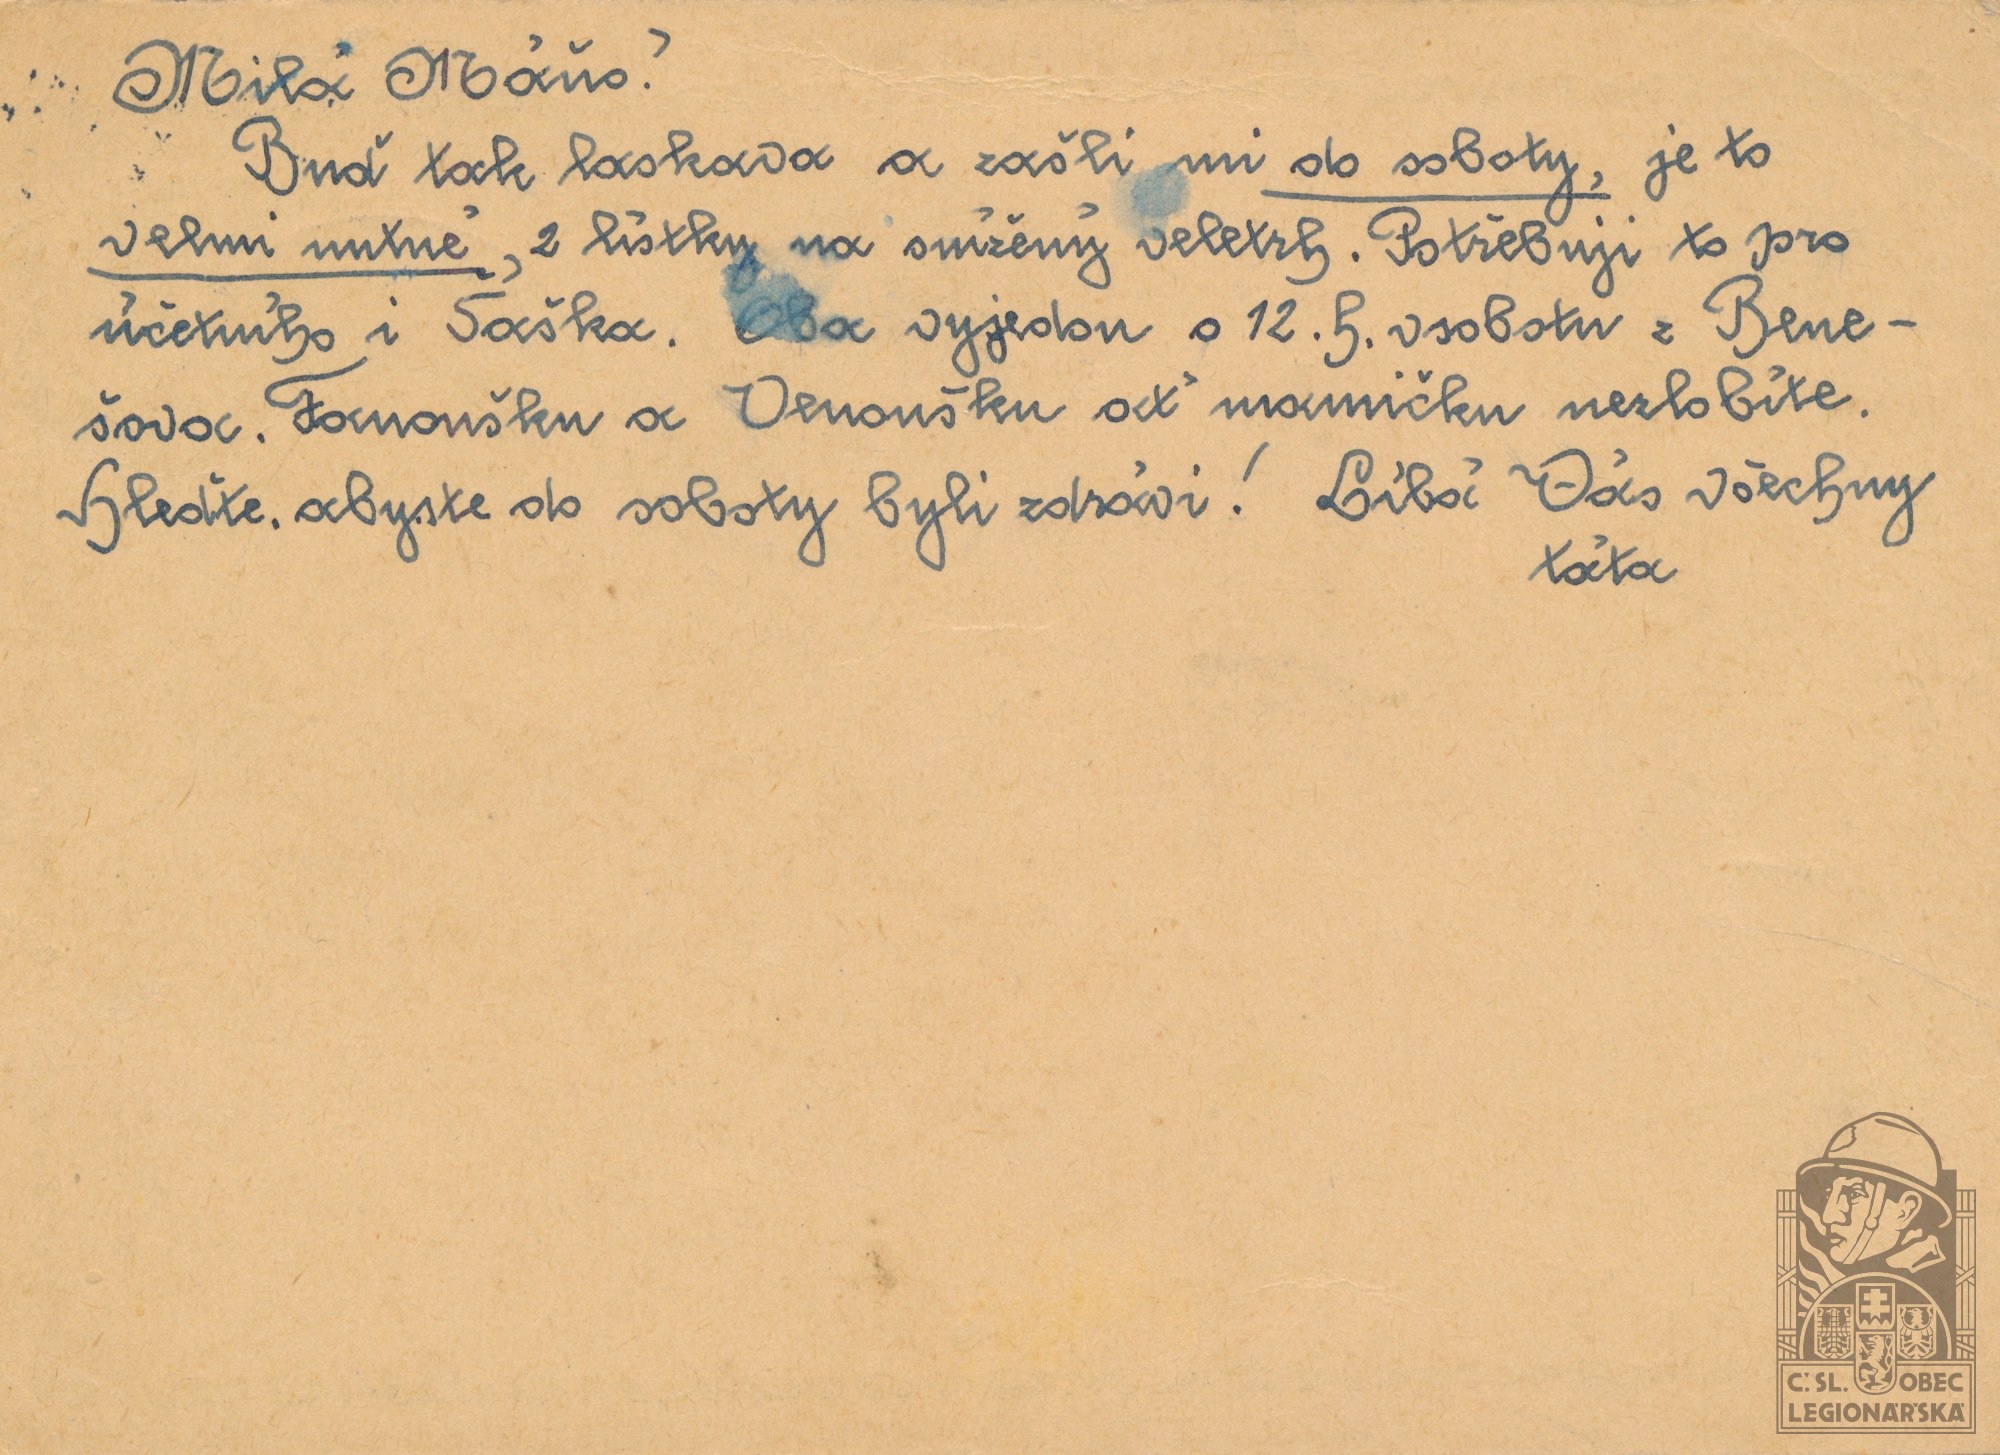 Milá Máňo!
Buď tak laskava a zašli mi do soboty, je to
velmi nutné, 2 lístky na snížený veletrh. Potřebuji to pro
účetního i Šaška. Oba vyjedou o 12.h. v sobotu z Bene-
šova. Fanoušku a Venoušku ať mamičku nezlobíte.
Hleďte, abyste do soboty byli zdrávi! Líbá Vás všechny
táta
Č. SL. OBEC
LEGIONÁŘSKÁ